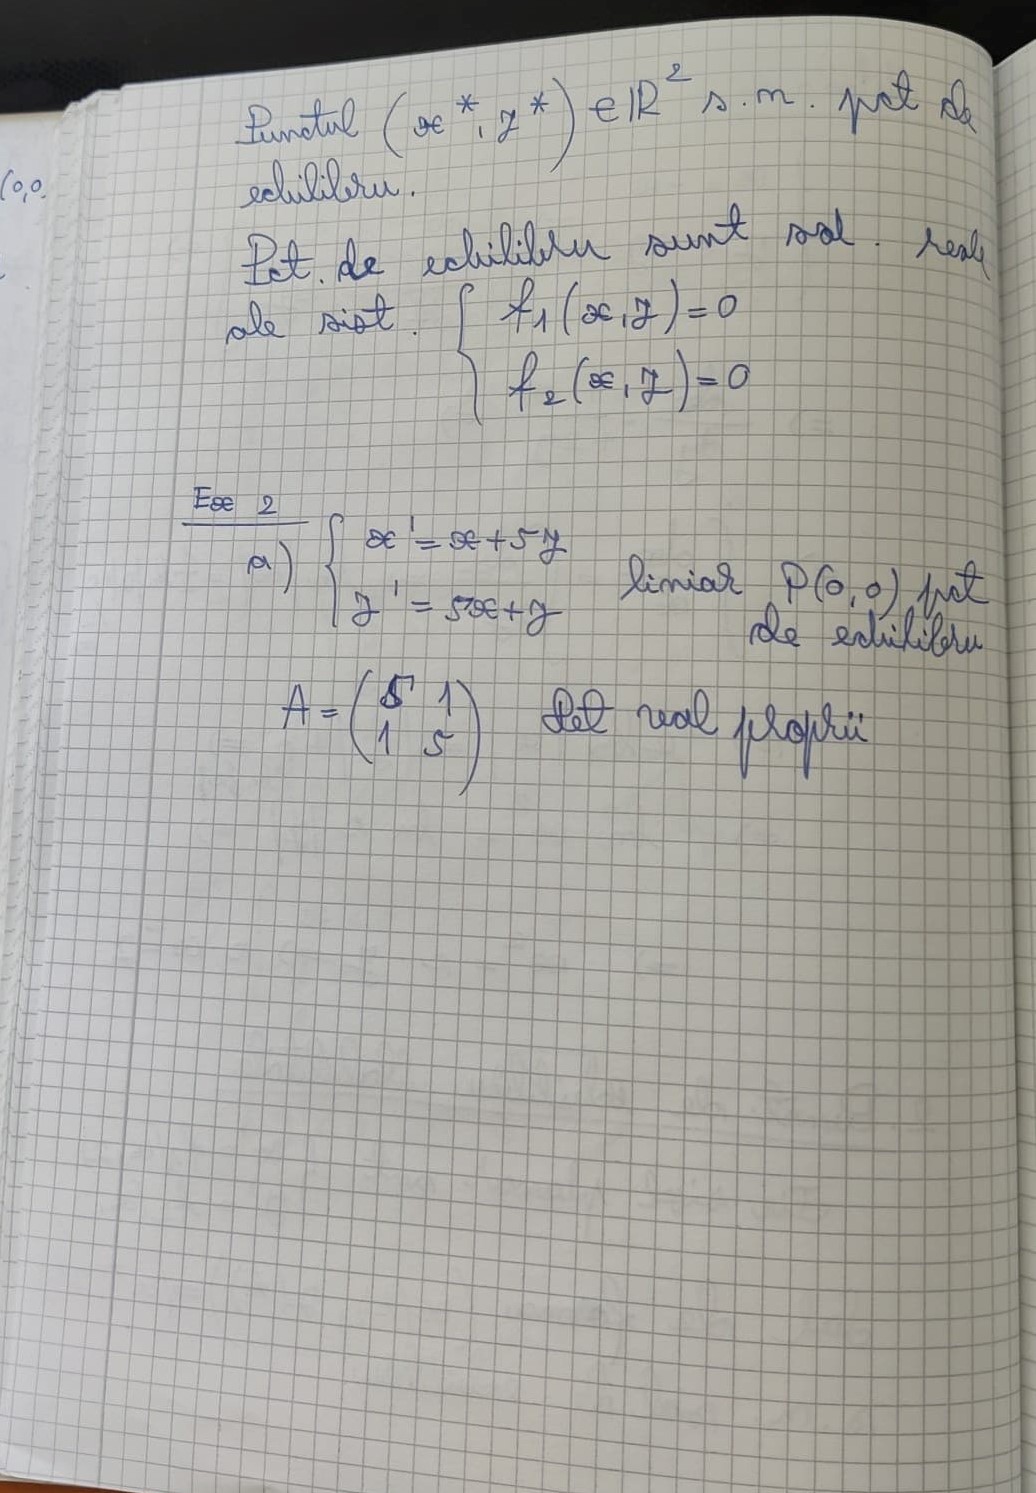 Punctul (x*, y*) ∈ ℝ² s.n. pct de
echilibru.
Pct. de echilibru sunt sol. reale
ale sist. { f₁(x,y)=0
f₂(x,y)=0
Ex 2
a) { x' = x+5y
y' = 5x+y
liniar P(0,0) pct
de echilibru
A = (5 1
1 5)
Det val proprii
(0,0